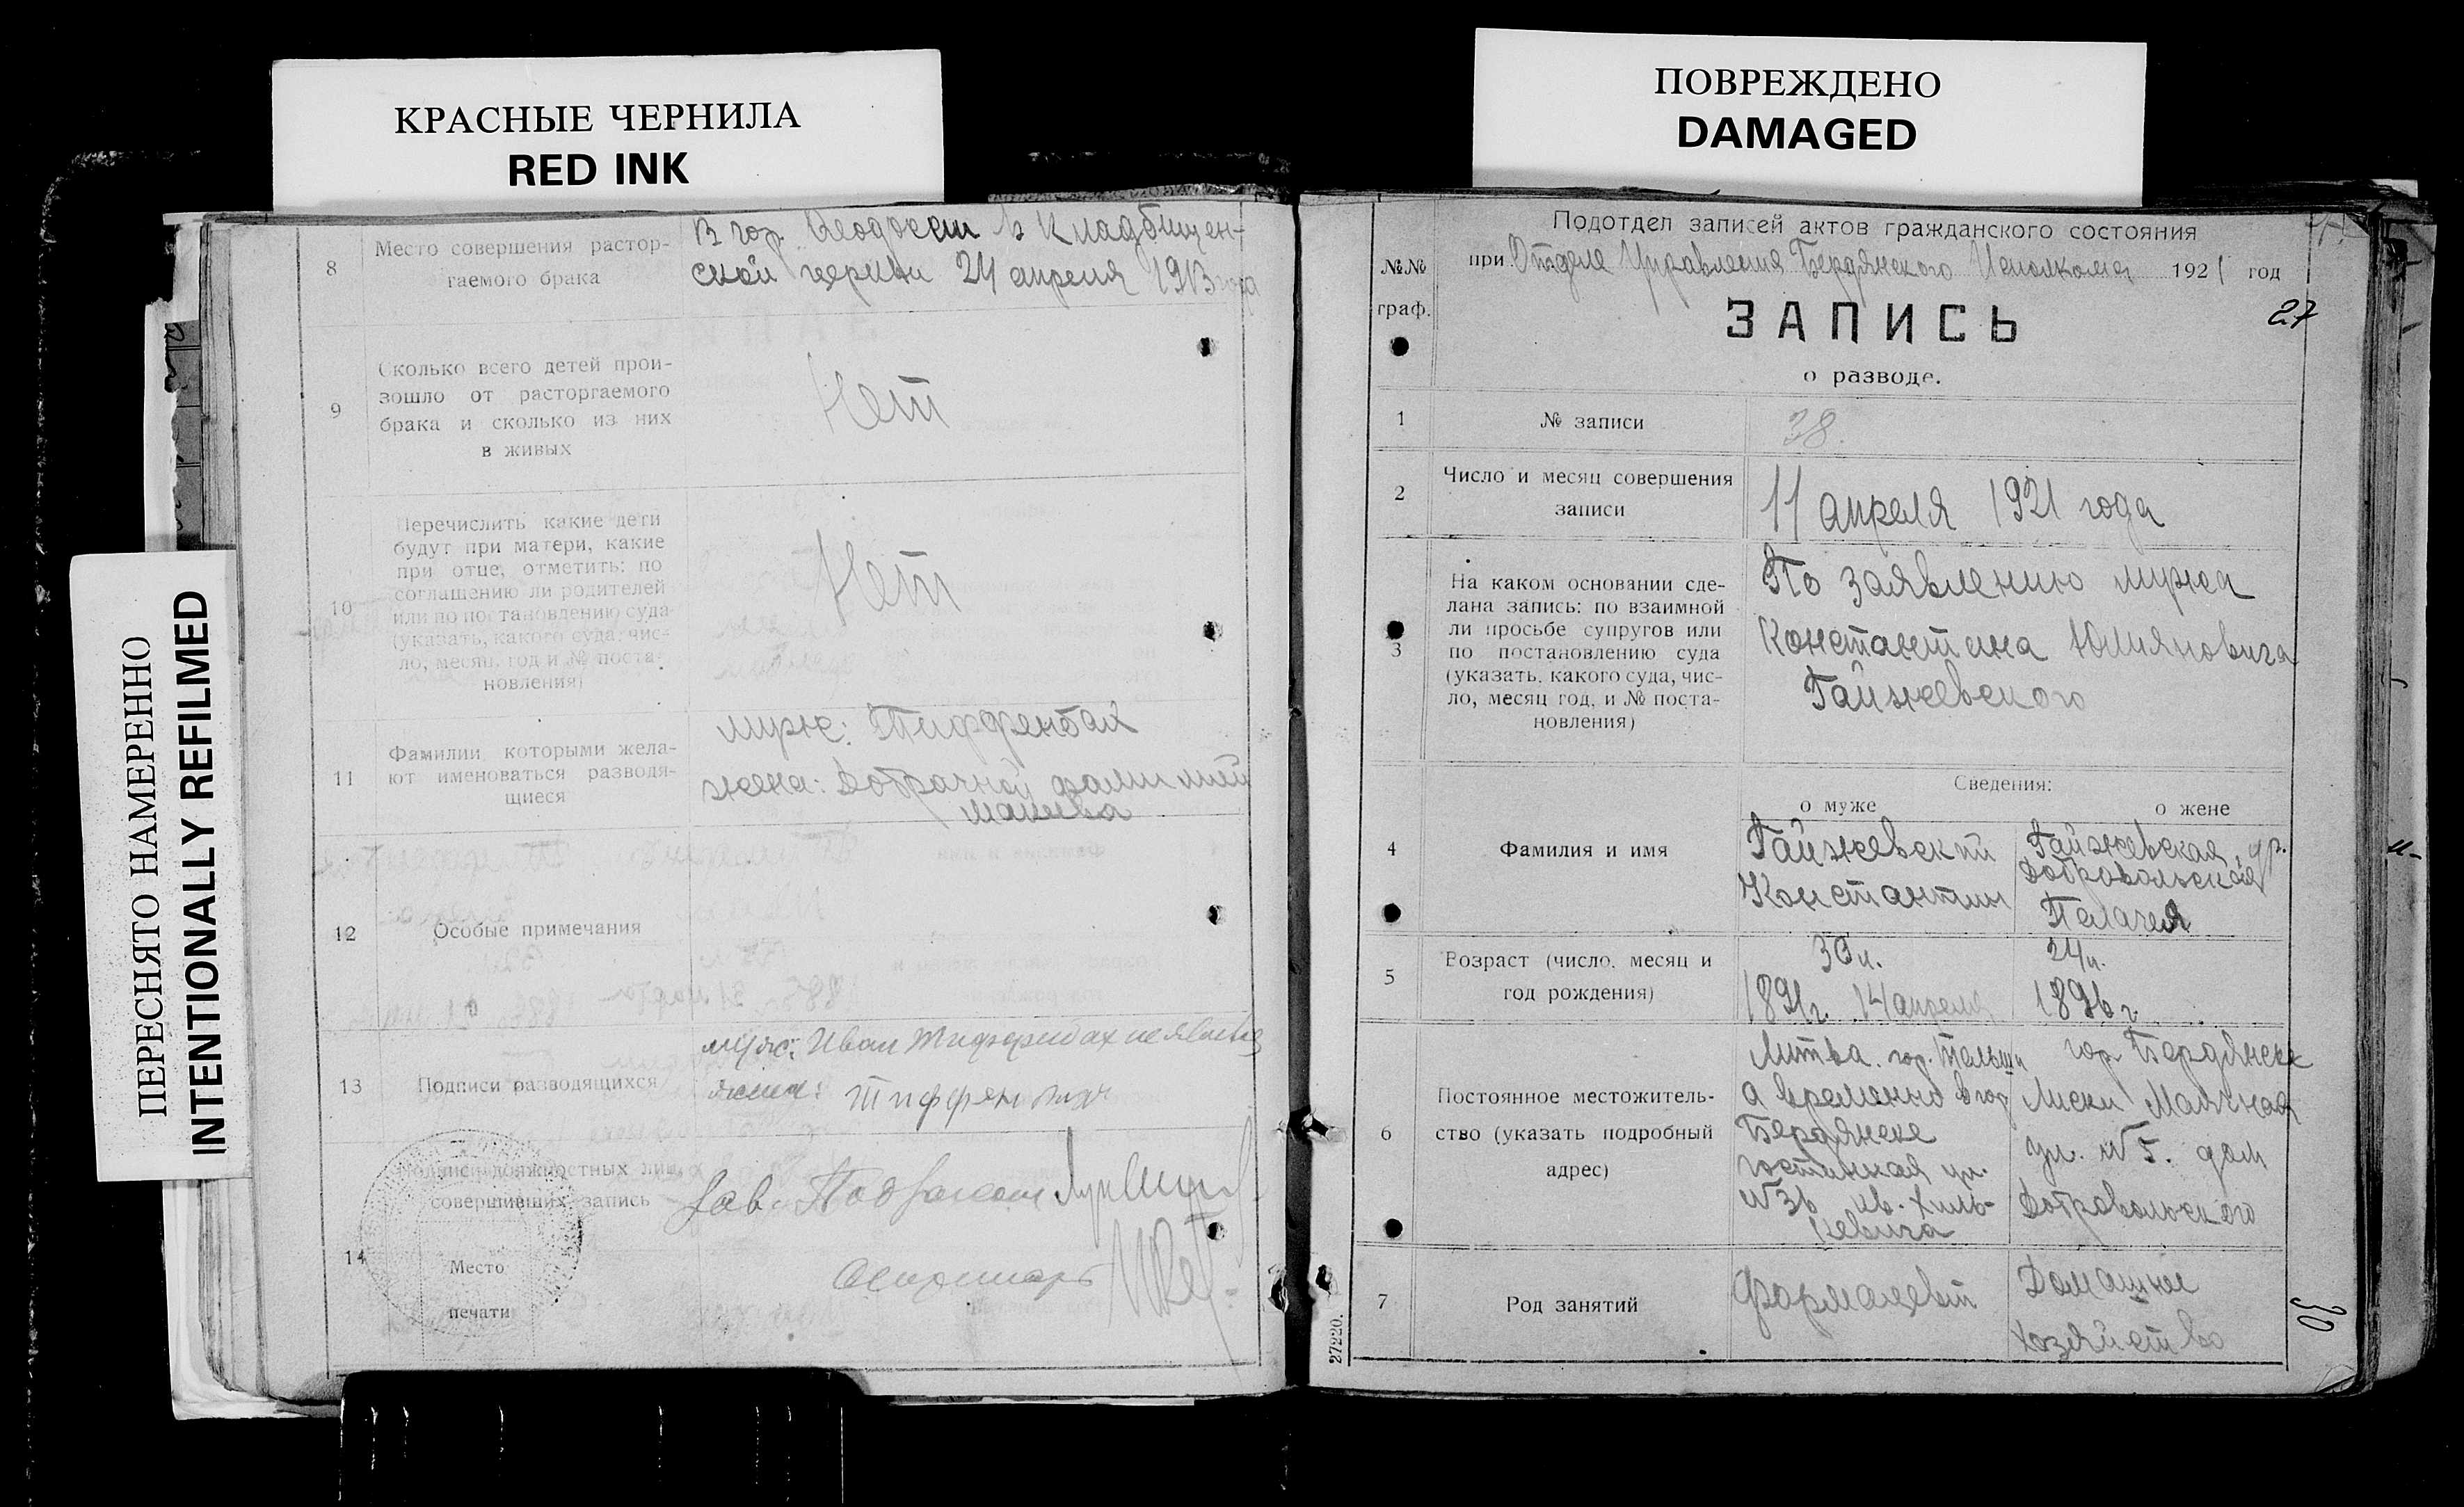 КРАСНЫЕ ЧЕРНИЛА
RED INK
ПОВРЕЖДЕНО
DAMAGED
ПЕРЕСНЯТО НАМЕРЕННО
INTENTIONALLY REFILMED
8
Место совершения растор-
гаемого брака
В гор. Феодосии в Кладбищен-
ской церкви 24 апреля 1913 года
9
Сколько всего детей прои-
зошло от расторгаемого
брака и сколько из них
в живых
Нет
10
Перечислить какие дети
будут при матери, какие
при отце, отметить: по
соглашению ли родителей
или по постановлению суда
(указать, какого суда, чис-
ло, месяц, год и № поста-
новления)
Нет
11
Фамилии которыми жела-
ют именоваться разводя-
щиеся
муж: Тиффенбах
жена: Добрачной фамилией
12
Особые примечания
13
Подписи разводящихся
муж: Иван Тиффенбах не явился
жена: Тиффенбах
14
Подписи должностных лиц,
совершивших запись
Зав. Подзагсом
Место
печати
Секретарь
Подотдел записей актов гражданского состояния
№№
граф.
при Отделе Управления Бердянского Исполкома 1921 год
27
ЗАПИСЬ
о разводе.
1
№ записи
38.
2
Число и месяц совершения
записи
11 апреля 1921 года
3
На каком основании сде-
лана запись: по взаимной
ли просьбе супругов или
по постановлению суда
(указать, какого суда, чис-
ло, месяц год, и № поста-
новления)
По заявлению мужа
Константина Юлияновича
Гайжевского
Сведения:
о муже
о жене
4
Фамилия и имя
Гайжевский
Константин
Гайжевская, ур.
Добровольская
Пелагея
5
Возраст (число, месяц и
год рождения)
30 л.
1891 г. 14 апреля
24 л.
1896 г.
6
Постоянное местожитель-
ство (указать подробный
адрес)
Литва гор. Тельши
а временно в гор
Бердянске
Гостинная ул.
№ 36 кв. Хиль-
кевича
гор. Бердянске
Лиски Маячная
ул. № 5. дом
Добровольского
7
Род занятий
Фармацевт
Домашнее
хозяйство
30
27220.